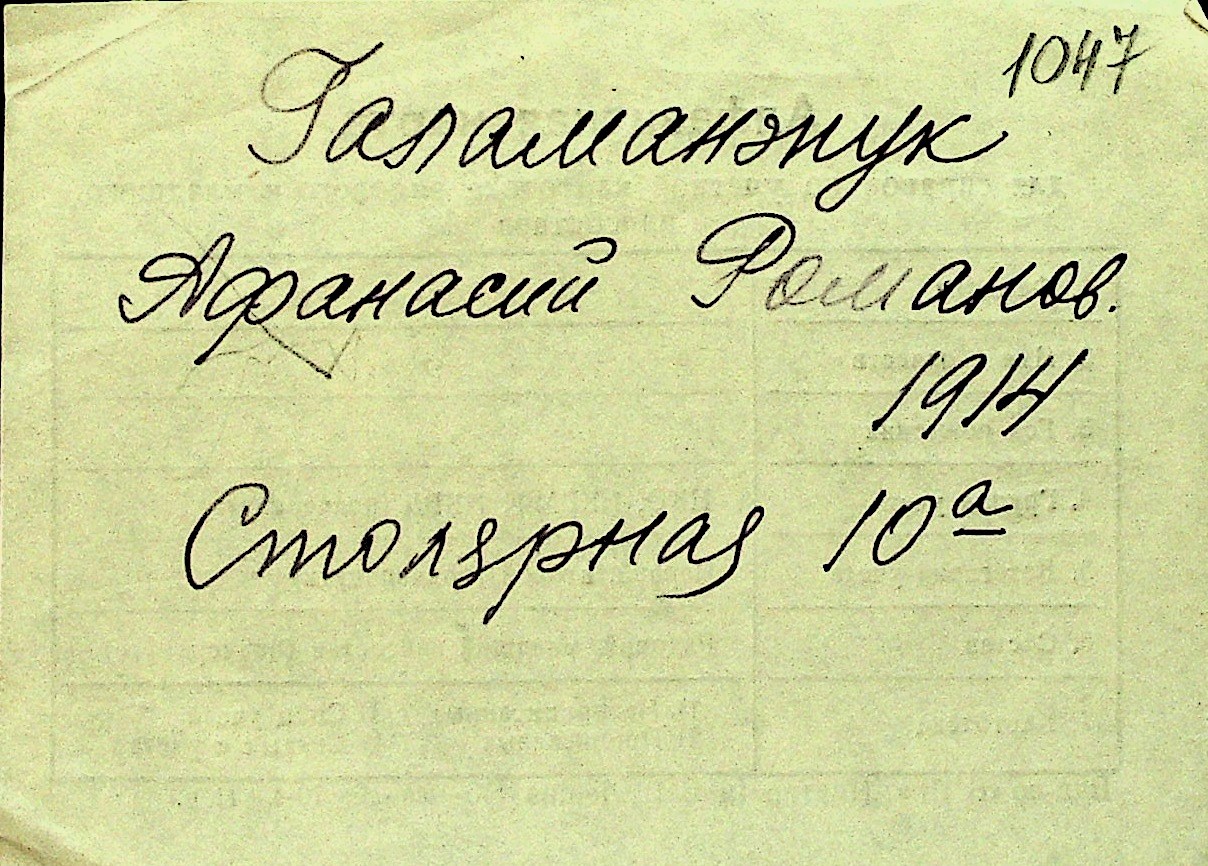 1047
Галаманжук
Афанасий Романов.
1914
Столярная 10а